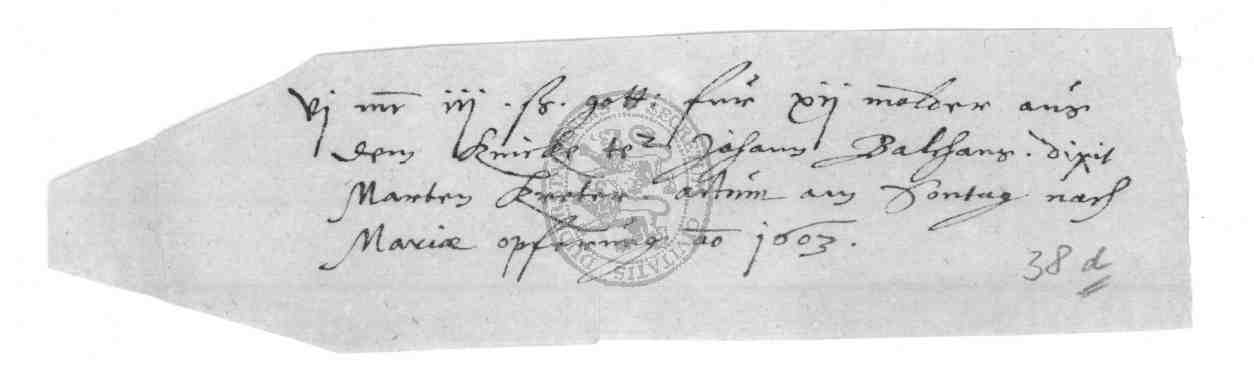 vj mr iij . ß. gott: fur xij molder aus
dem Knicke te Johann Balthans . dixit
Marten Kreter actum am Sontag nach
Mariæ opferung ao 1603 .
38 d